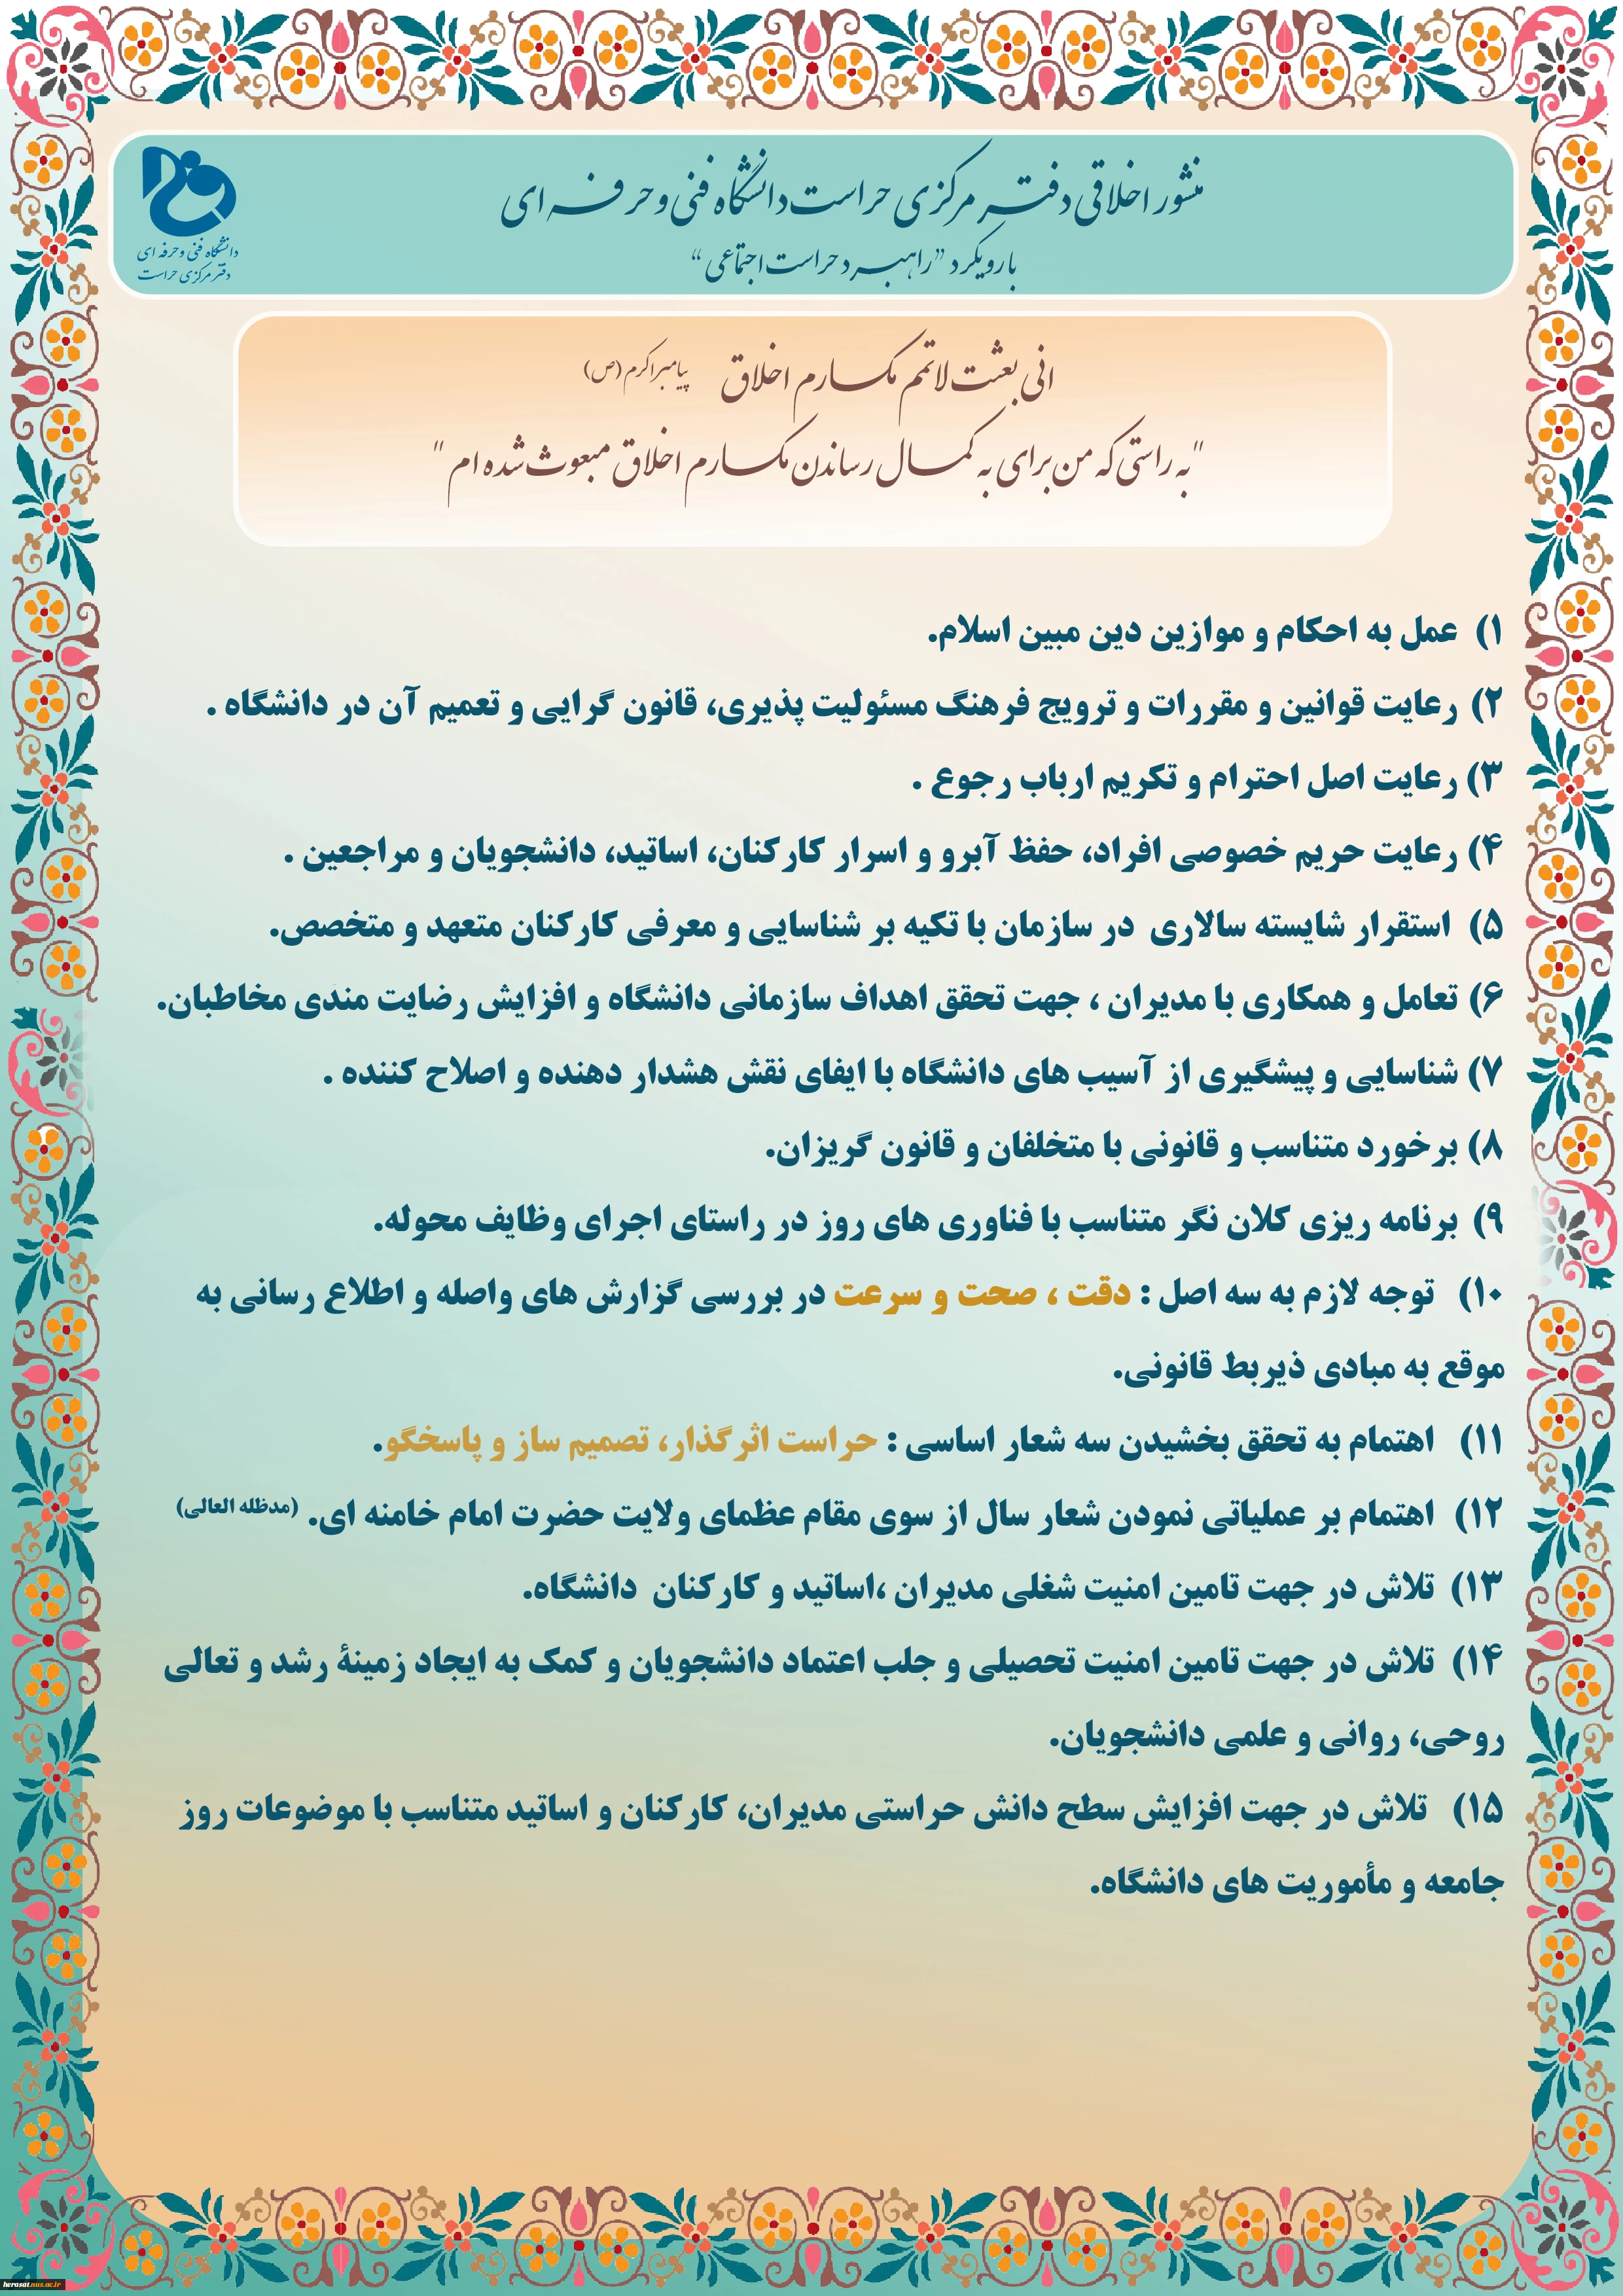 منشور اخلاقی دفتر مرکزی حراست دانشگاه فنی و حرفه ای
با رویکرد "راهبرد حراست اجتماعی"
دانشگاه فنی و حرفه ای
دفتر مرکزی حراست
انی بعثت لاتمم مکارم اخلاق پیامبر اکرم (ص)
"به راستی که من برای به کمال رساندن مکارم اخلاق مبعوث شده ام"
۱) عمل به احکام و موازین دین مبین اسلام.
۲) رعایت قوانین و مقررات و ترویج فرهنگ مسئولیت پذیری، قانون گرایی و تعمیم آن در دانشگاه .
۳) رعایت اصل احترام و تکریم ارباب رجوع .
۴) رعایت حریم خصوصی افراد، حفظ آبرو و اسرار کارکنان، اساتید، دانشجویان و مراجعین .
۵) استقرار شایسته سالاری در سازمان با تکیه بر شناسایی و معرفی کارکنان متعهد و متخصص.
۶) تعامل و همکاری با مدیران ، جهت تحقق اهداف سازمانی دانشگاه و افزایش رضایت مندی مخاطبان.
۷) شناسایی و پیشگیری از آسیب های دانشگاه با ایفای نقش هشدار دهنده و اصلاح کننده .
۸) برخورد متناسب و قانونی با متخلفان و قانون گریزان.
۹) برنامه ریزی کلان نگر متناسب با فناوری های روز در راستای اجرای وظایف محوله.
۱۰) توجه لازم به سه اصل : دقت ، صحت و سرعت در بررسی گزارش های واصله و اطلاع رسانی به
موقع به مبادی ذیربط قانونی.
۱۱) اهتمام به تحقق بخشیدن سه شعار اساسی : حراست اثرگذار، تصمیم ساز و پاسخگو.
۱۲) اهتمام بر عملیاتی نمودن شعار سال از سوی مقام عظمای ولایت حضرت امام خامنه ای. (مدظله العالی)
۱۳) تلاش در جهت تامین امنیت شغلی مدیران ،اساتید و کارکنان دانشگاه.
۱۴) تلاش در جهت تامین امنیت تحصیلی و جلب اعتماد دانشجویان و کمک به ایجاد زمینهٔ رشد و تعالی
روحی، روانی و علمی دانشجویان.
۱۵) تلاش در جهت افزایش سطح دانش حراستی مدیران، کارکنان و اساتید متناسب با موضوعات روز
جامعه و مأموریت های دانشگاه.
herasat.nus.ac.ir